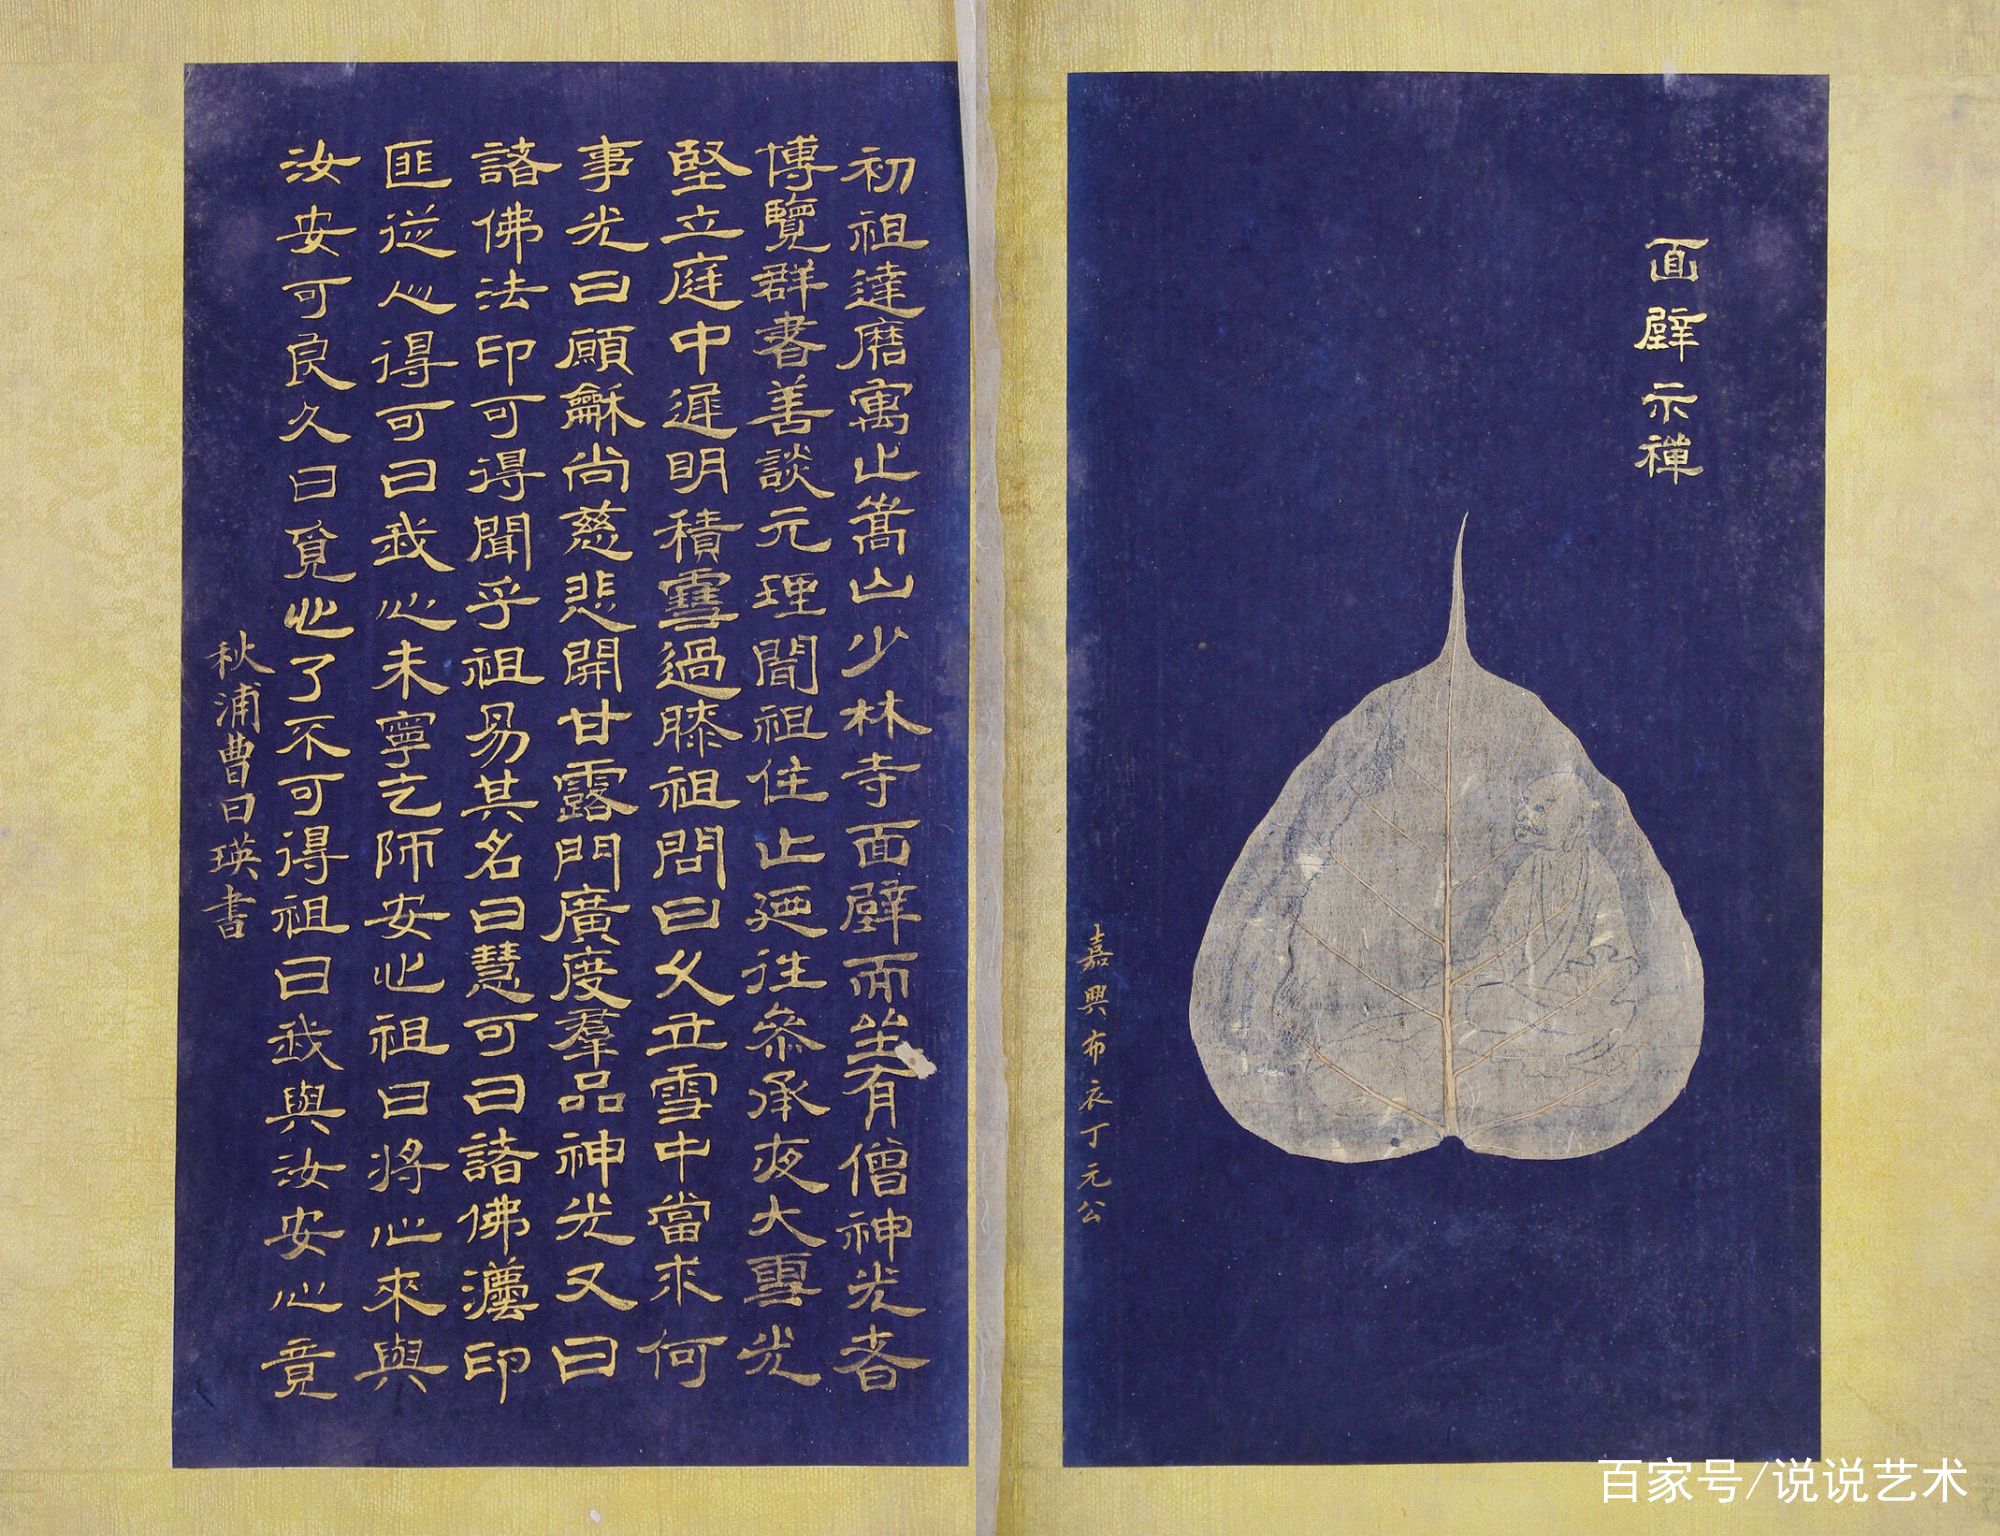 面壁示禪
嘉興布衣丁元公
初祖達磨寓止嵩山少林寺面壁而坐有僧神光者
博覽群書善談元理聞祖住止迺往參承夜大雪光
堅立庭中遲明積雪過膝祖問曰久立雪中當求何
事光曰願龢尚慈悲開甘露門廣度羣品神光又曰
諸佛法印可得聞乎祖易其名曰慧可曰諸佛灋印
匪從心得可曰我心未寧乞師安心祖曰將心來與
汝安可良久曰覓心了不可得祖曰我與汝安心竟
秋浦曹曰瑛書
百家号/说说艺术